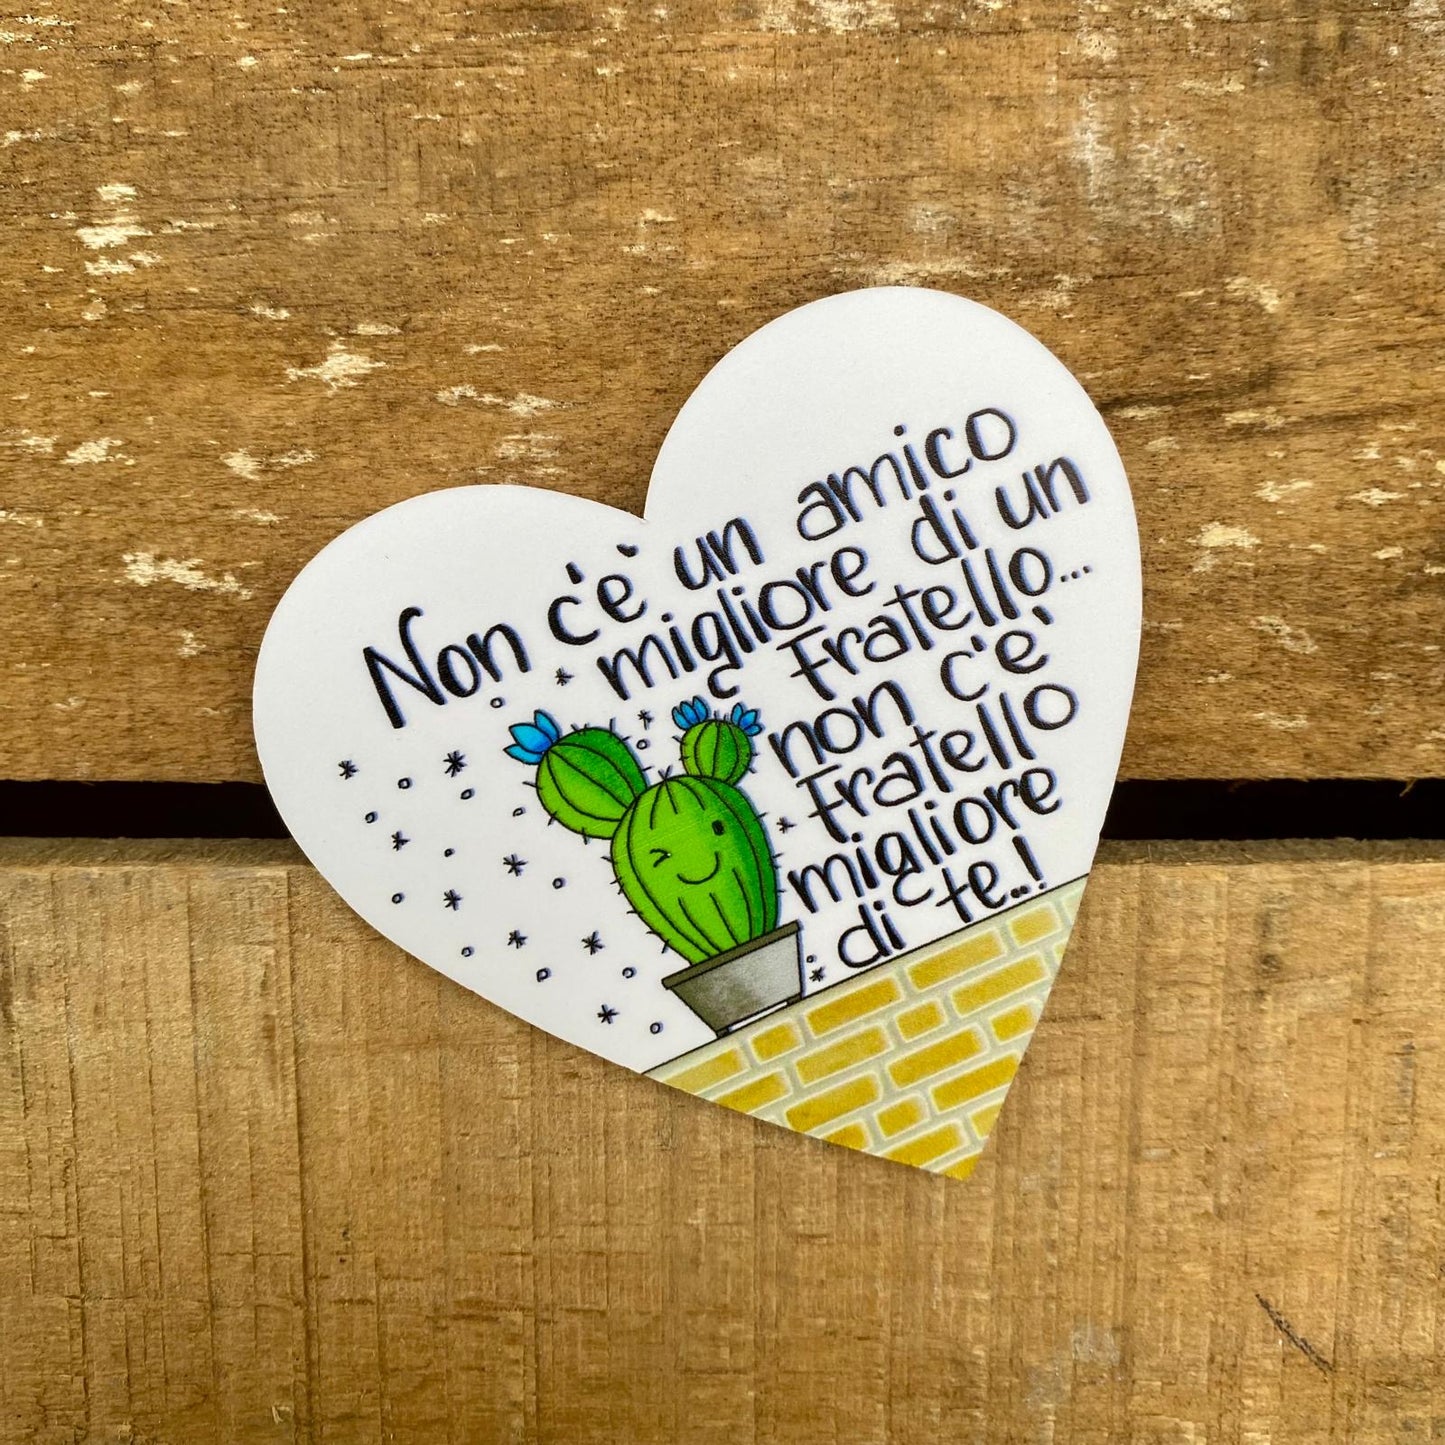 Non c'è un amico
migliore di un
Fratello...
non c'è
Fratello
migliore
di te..!